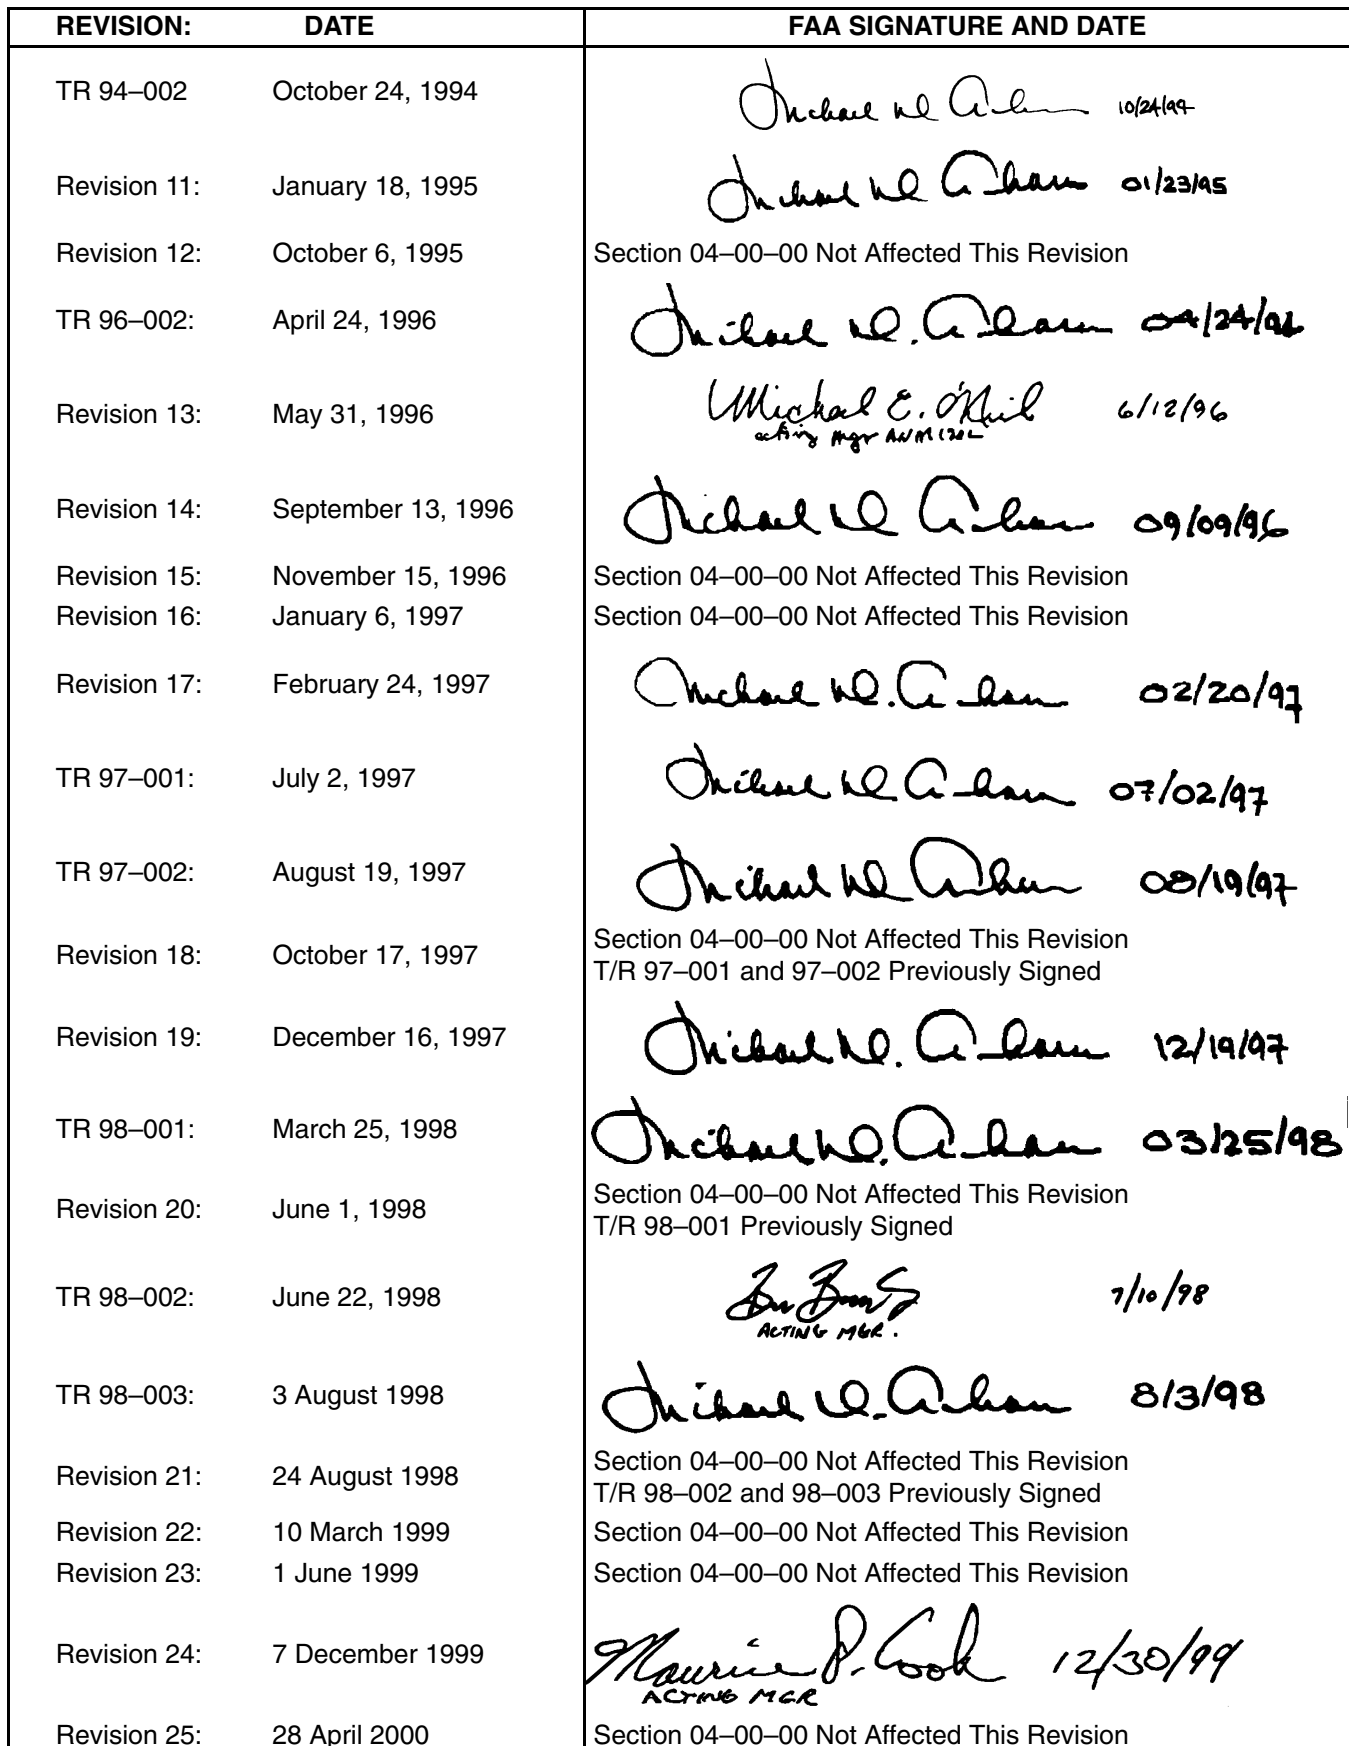 REVISION: DATE FAA SIGNATURE AND DATE
TR 94–002 October 24, 1994 Michael 10/24/94
Revision 11: January 18, 1995 Michael 01/23/95
Revision 12: October 6, 1995 Section 04–00–00 Not Affected This Revision
TR 96–002: April 24, 1996 Michael 04/24/96
Revision 13: May 31, 1996 Michael E. O'Neil 6/12/96
acting Mgr
Revision 14: September 13, 1996 Michael 09/09/96
Revision 15: November 15, 1996 Section 04–00–00 Not Affected This Revision
Revision 16: January 6, 1997 Section 04–00–00 Not Affected This Revision
Revision 17: February 24, 1997 Michael 02/20/97
TR 97–001: July 2, 1997 Michael 07/02/97
TR 97–002: August 19, 1997 Michael 08/19/97
Revision 18: October 17, 1997 Section 04–00–00 Not Affected This Revision
T/R 97–001 and 97–002 Previously Signed
Revision 19: December 16, 1997 Michael 12/19/97
TR 98–001: March 25, 1998 Michael 03/25/98
Revision 20: June 1, 1998 Section 04–00–00 Not Affected This Revision
T/R 98–001 Previously Signed
TR 98–002: June 22, 1998 7/10/98
ACTING MGR.
TR 98–003: 3 August 1998 Michael 8/3/98
Revision 21: 24 August 1998 Section 04–00–00 Not Affected This Revision
T/R 98–002 and 98–003 Previously Signed
Revision 22: 10 March 1999 Section 04–00–00 Not Affected This Revision
Revision 23: 1 June 1999 Section 04–00–00 Not Affected This Revision
Revision 24: 7 December 1999 Maurice P. Cook 12/30/99
ACTING MGR
Revision 25: 28 April 2000 Section 04–00–00 Not Affected This Revision